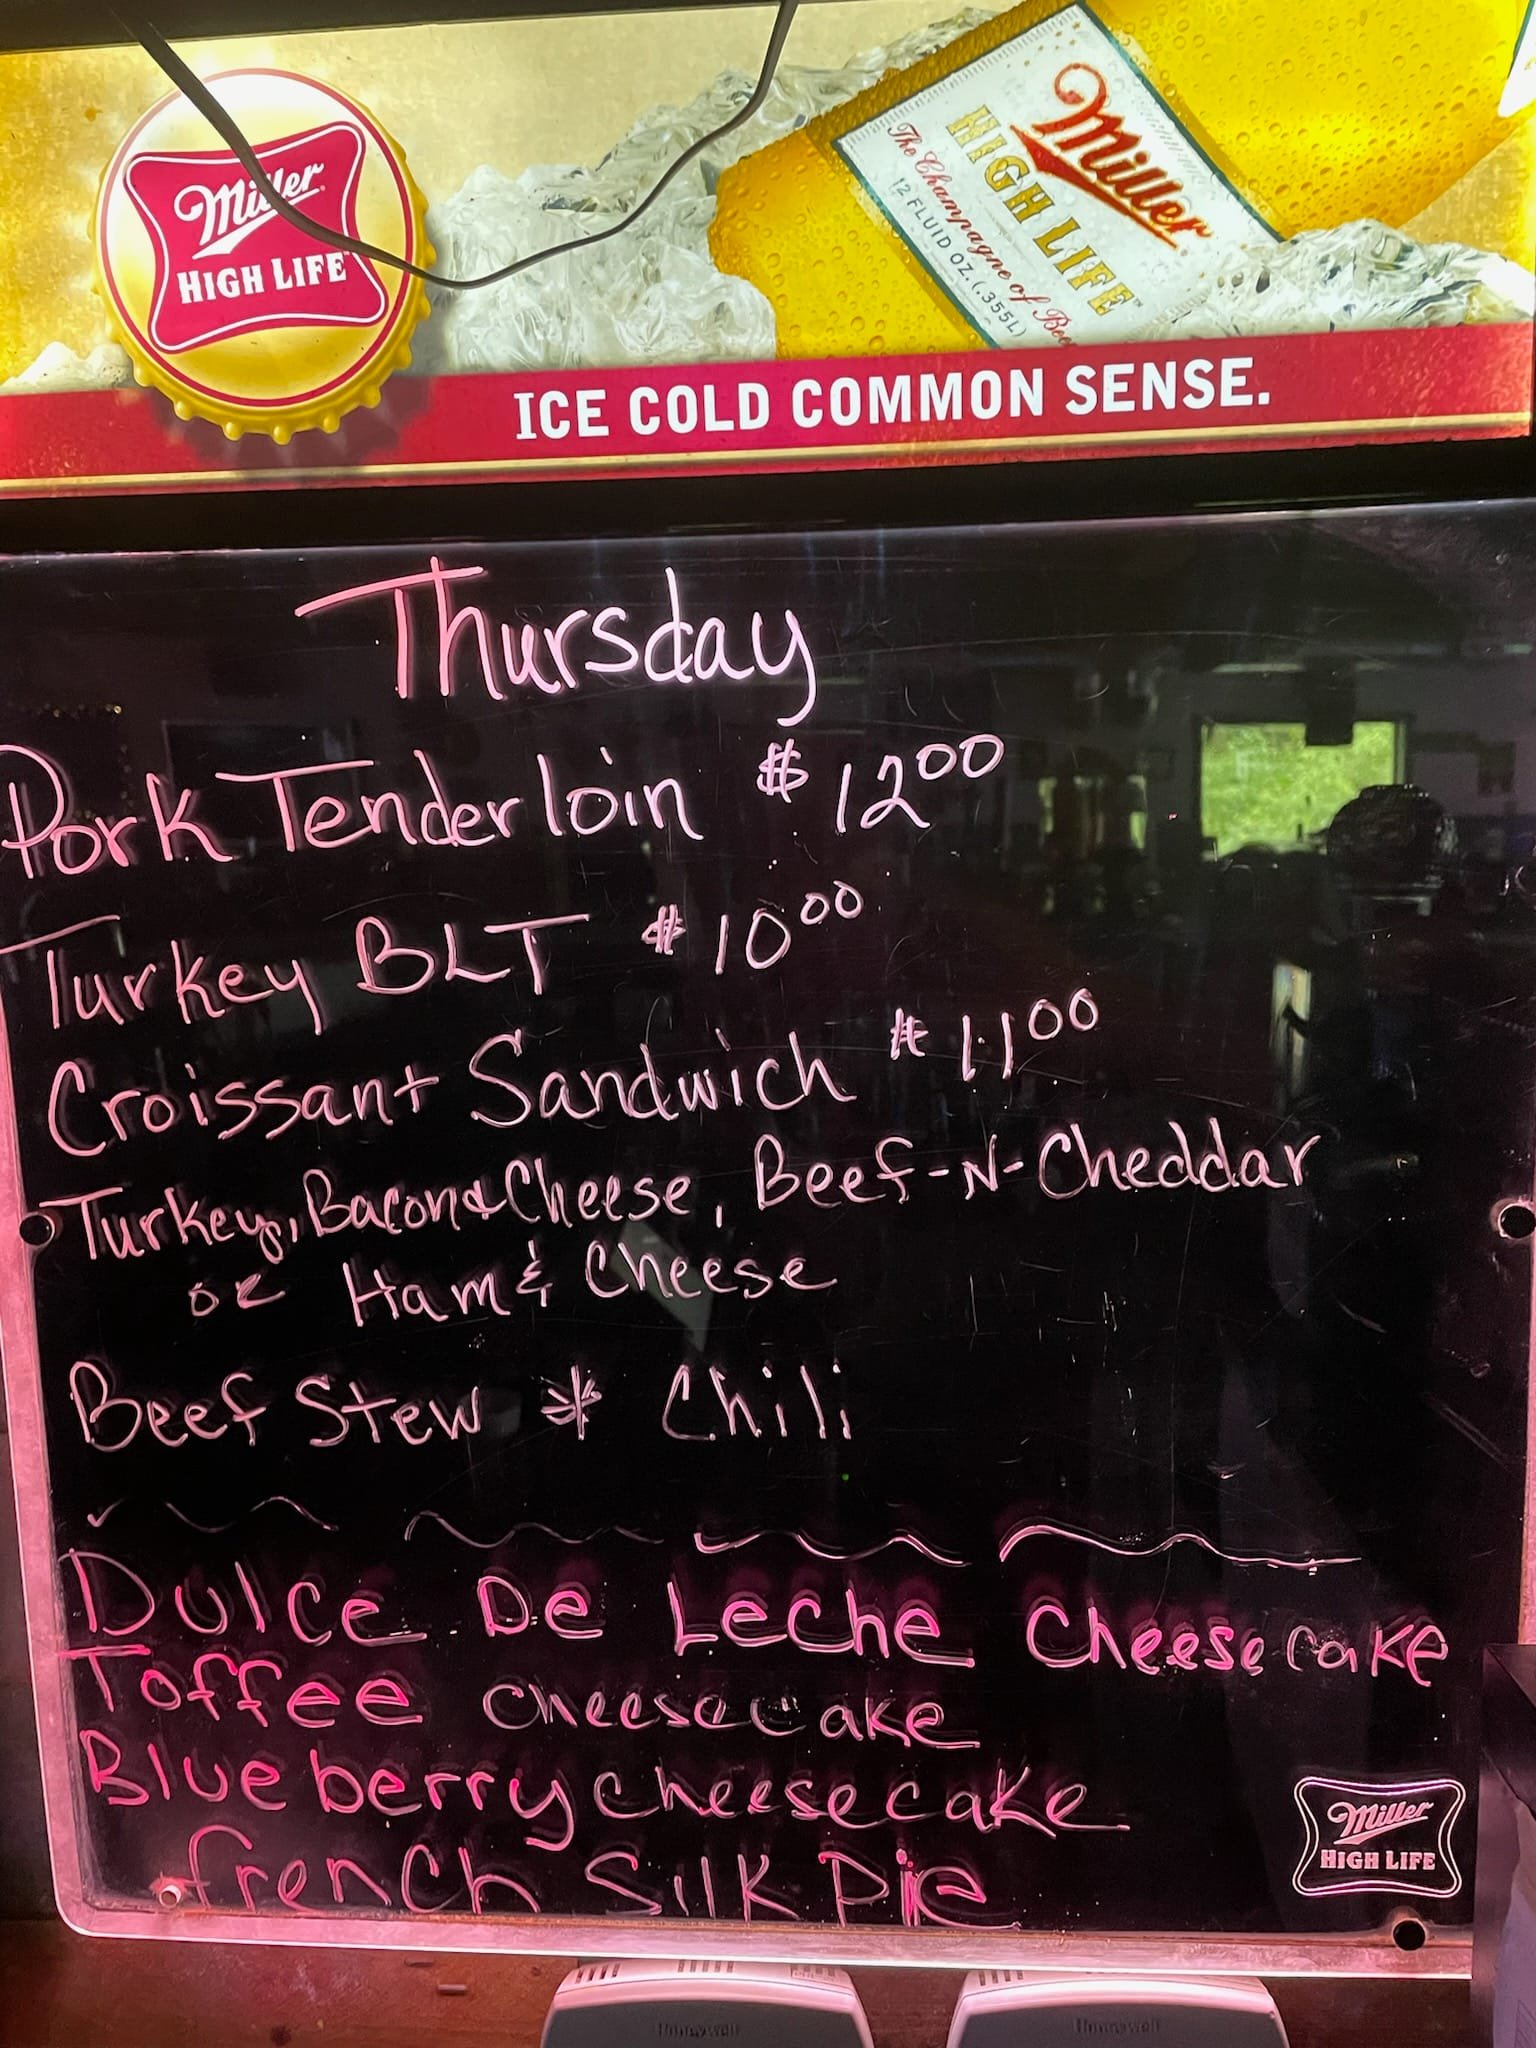 Miller
HIGH LIFE
Miller
HIGH LIFE™
The Champagne of Be
12 FLUID OZ. (.355L)
ICE COLD COMMON SENSE.
Thursday
Pork Tenderloin $ 12 00
Turkey BLT $ 10 00
Croissant Sandwich $ 11 00
Turkey, Bacon & Cheese, Beef-N-Cheddar
or Ham & Cheese
Beef Stew * Chili
Dulce De Leche Cheesecake
Toffee cheesecake
Blueberry cheesecake
french Silk Pie
Miller
HIGH LIFE
Honeywell
Honeywell